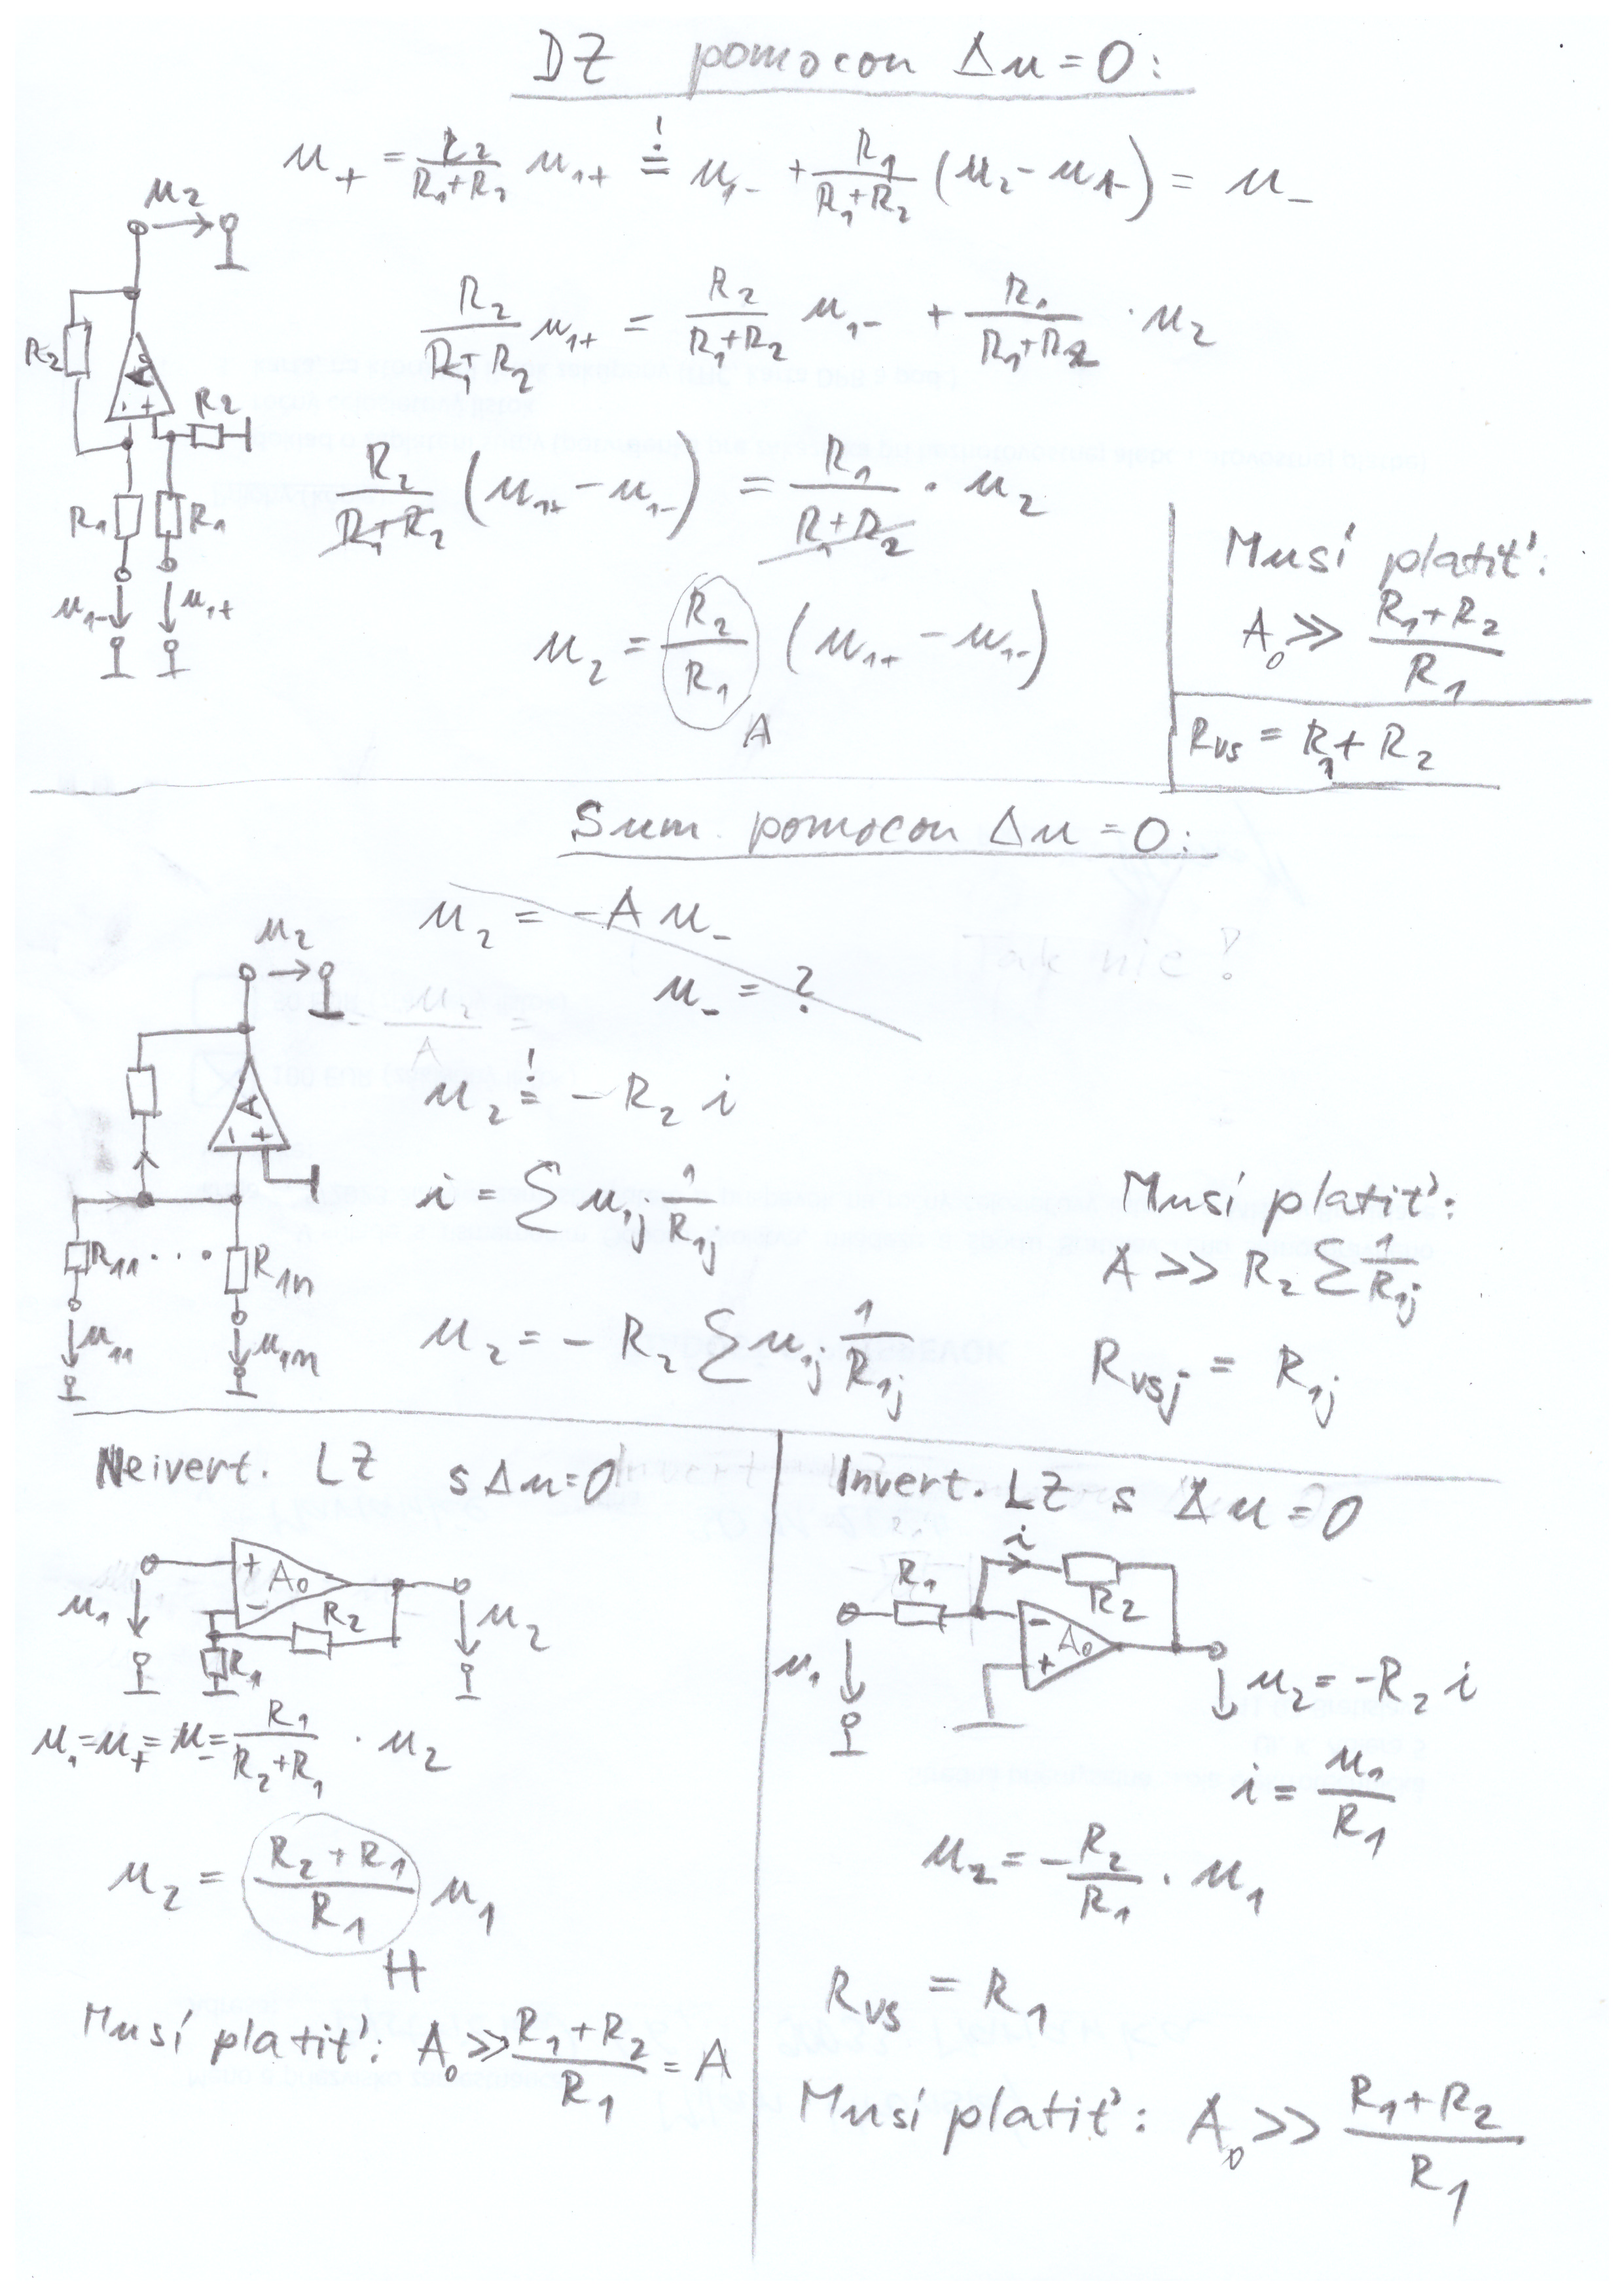 DZ pomocou Δu = 0:
u₊ = R₂/(R₁+R₂) u₁₊ =! u₁₋ + R₁/(R₁+R₂) (u₂ - u₁₋) = u₋
u₂
R₂/(R₁+R₂) u₁₊ = R₂/(R₁+R₂) u₁₋ + R₁/(R₁+R₂) · u₂
R₂
A₀
- +
R₂
R₂/(R₁+R₂) (u₁₊ - u₁₋) = R₁/(R₁+R₂) · u₂
R₁ R₁
u₁₋ u₁₊
u₂ = R₂/R₁ (u₁₊ - u₁₋)
A
Musí platiť:
A₀ ≫ (R₁+R₂)/R₁
Rvs = R₁ + R₂
Sum. pomocou Δu = 0:
u₂ = -A u₋
u₋ = ?
Tak nie!
u₂
u₂ =! - R₂ i
A
- +
i = ∑ u₁j 1/R₁j
R₁₁ ... R₁n
u₁₁ u₁n
u₂ = - R₂ ∑ u₁j 1/R₁j
Musí platiť:
A >> R₂ ∑ 1/R₁j
Rvsj = R₁j
Neivert. LZ s Δu = 0
u₁
+
A₀
-
R₂
R₁
u₂
u₁ = u₊ = u₋ = R₁/(R₂+R₁) · u₂
u₂ = (R₂+R₁)/R₁ u₁
H
Musí platiť: A₀ ≫ (R₁+R₂)/R₁ = A
Invert. LZ s Δu = 0
i
R₁
R₂
-
A₀
+
u₁
u₂ = -R₂ i
i = u₁/R₁
u₂ = - R₂/R₁ · u₁
Rvs = R₁
Musí platiť: A₀ >> (R₁+R₂)/R₁